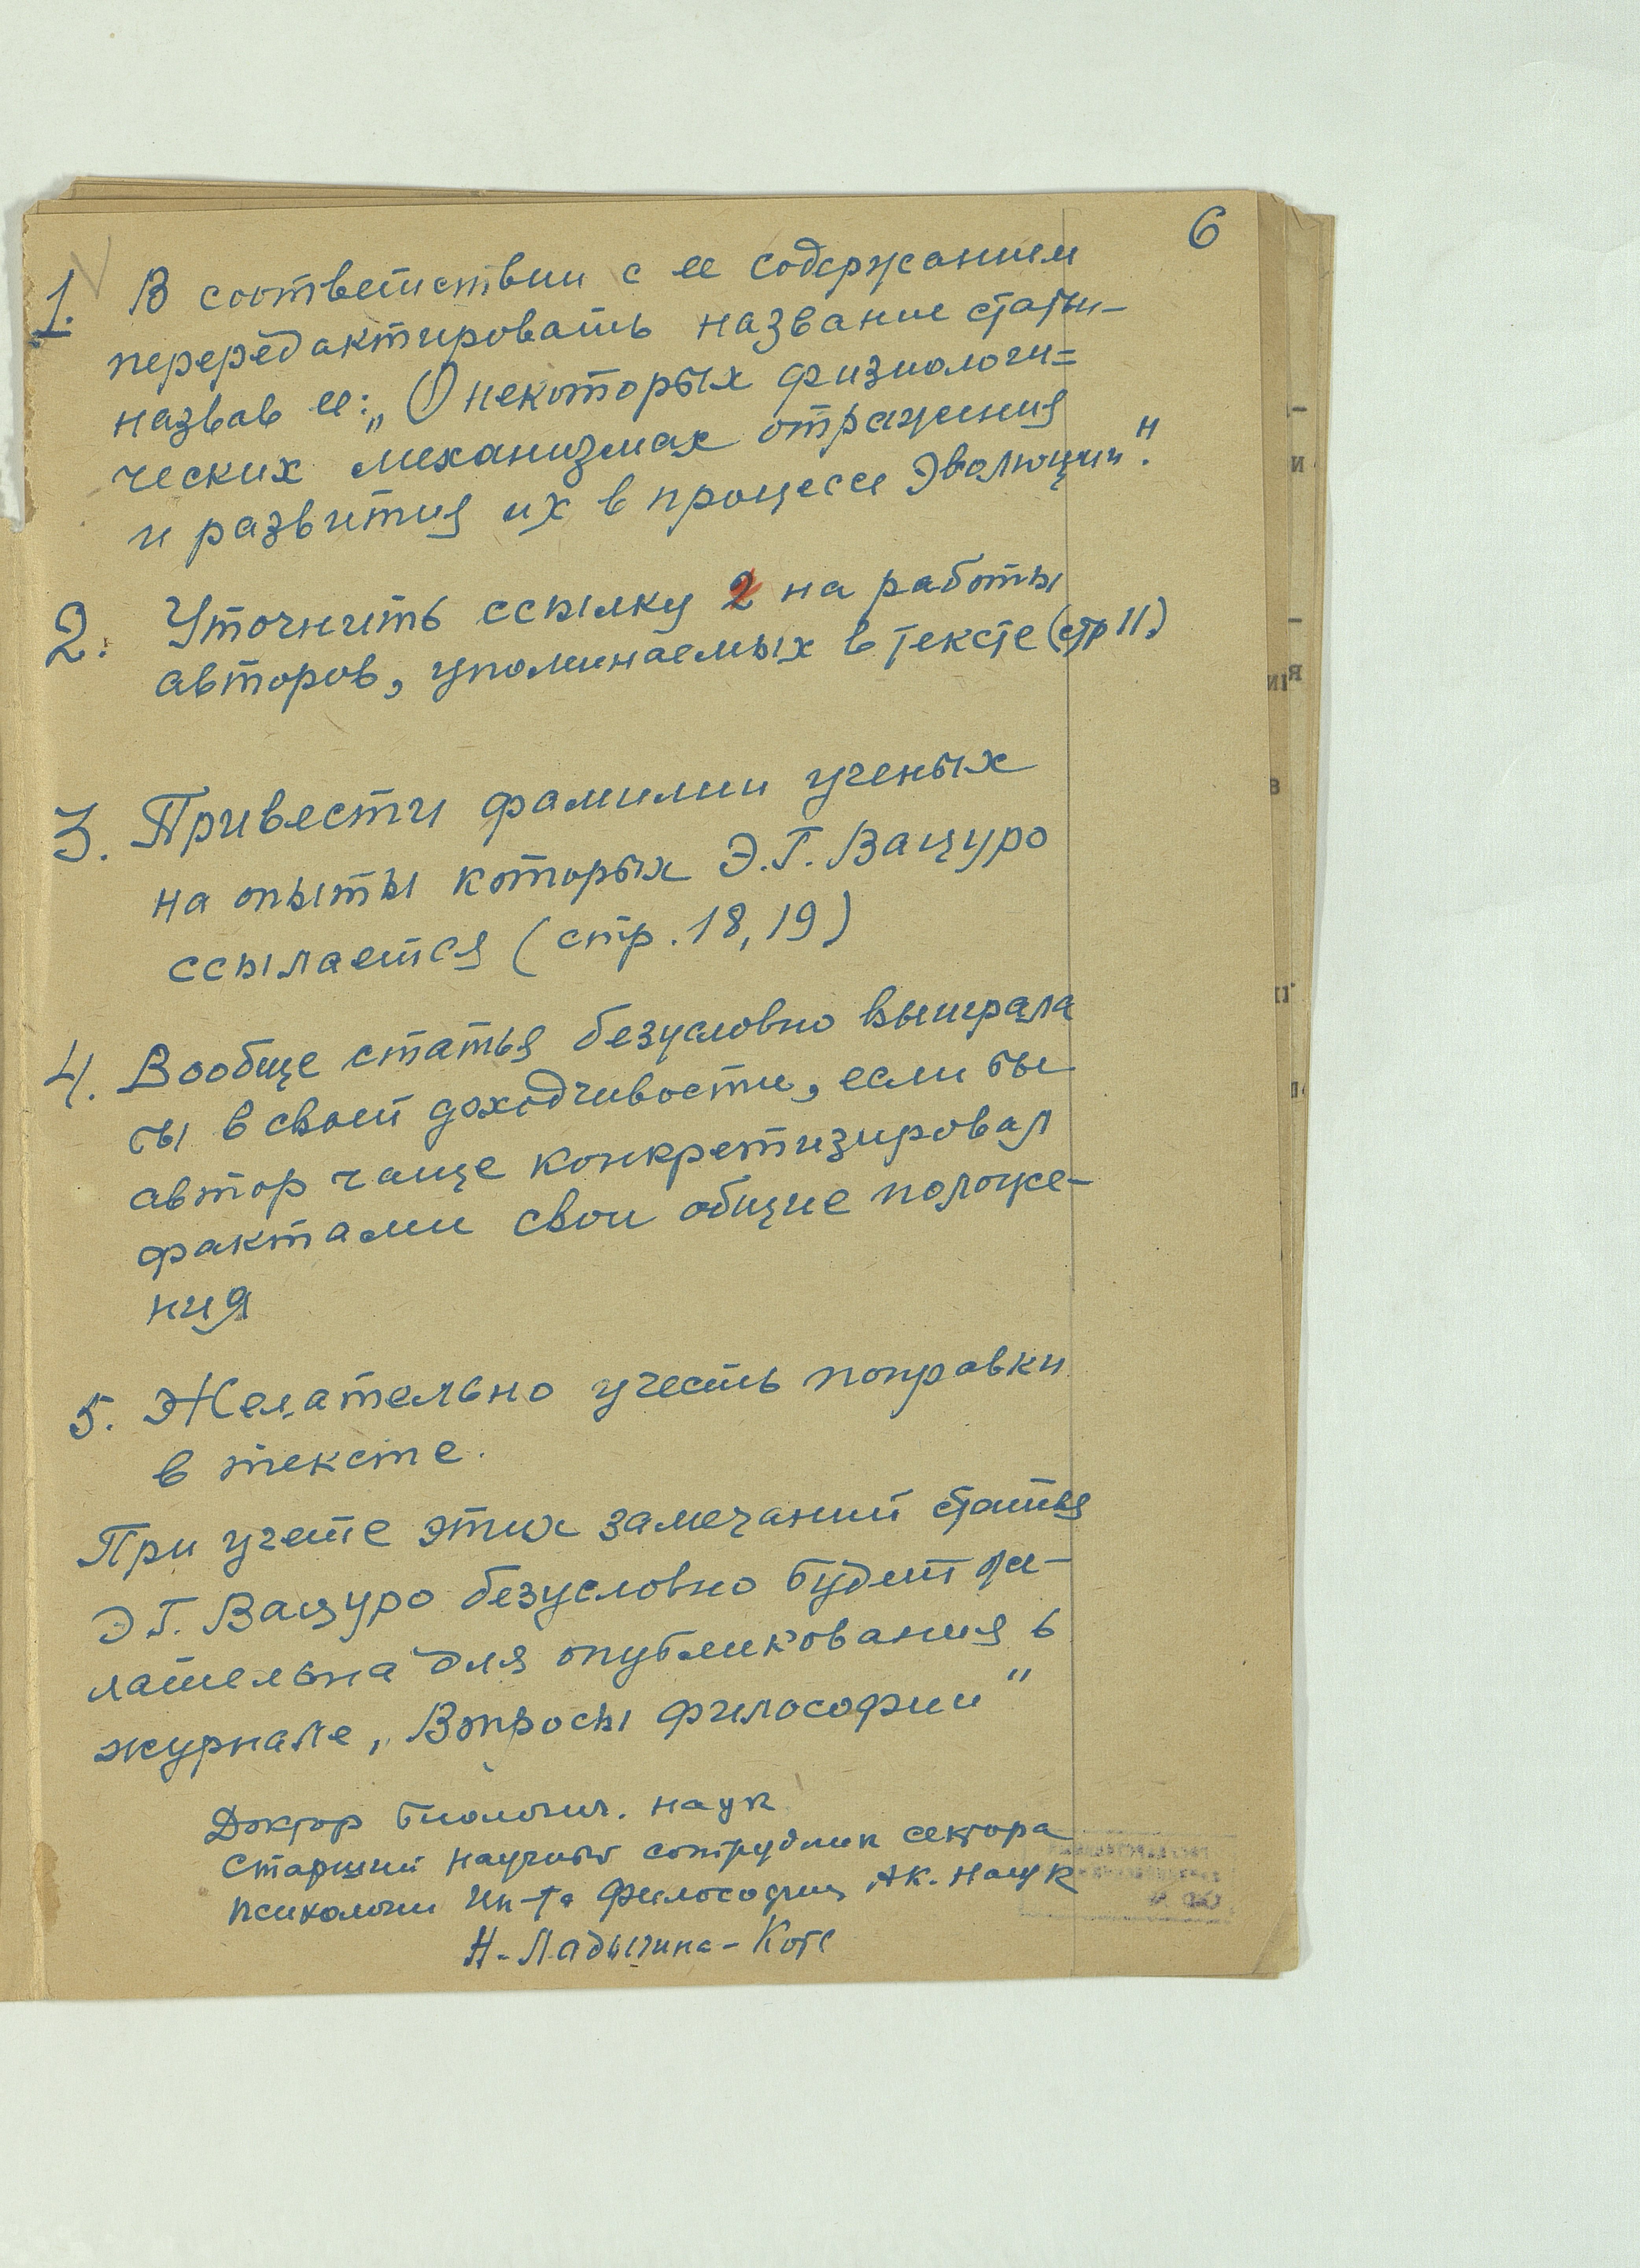 6
1. В соответствии с ее содержанием
перередактировать название статьи–
назвав ее: „О некоторых физиологи=
ческих механизмах отражения
и развития их в процессе эволюции".
2. Уточнить ссылку 2 на работы
авторов, упоминаемых в тексте (стр 11)
3. Привести фамилии ученых
на опыты которых Э.Г. Вацуро
ссылается (стр. 18, 19)
4. Вообще статья безусловно выиграла
бы в своей доходчивости, если бы
автор чаще конкретизировал
фактами свои общие положе–
ния
5. Желательно учесть поправки
в тексте.
При учете этих замечаний статья
Э Г. Вацуро безусловно будет же–
лательна для опубликования в
журнале „Вопросы философии"
Доктор биологич. наук
Старший научный сотрудник сектора
психологии Ин-та Философии Ак. Наук
Н. Ладыгина–Котс